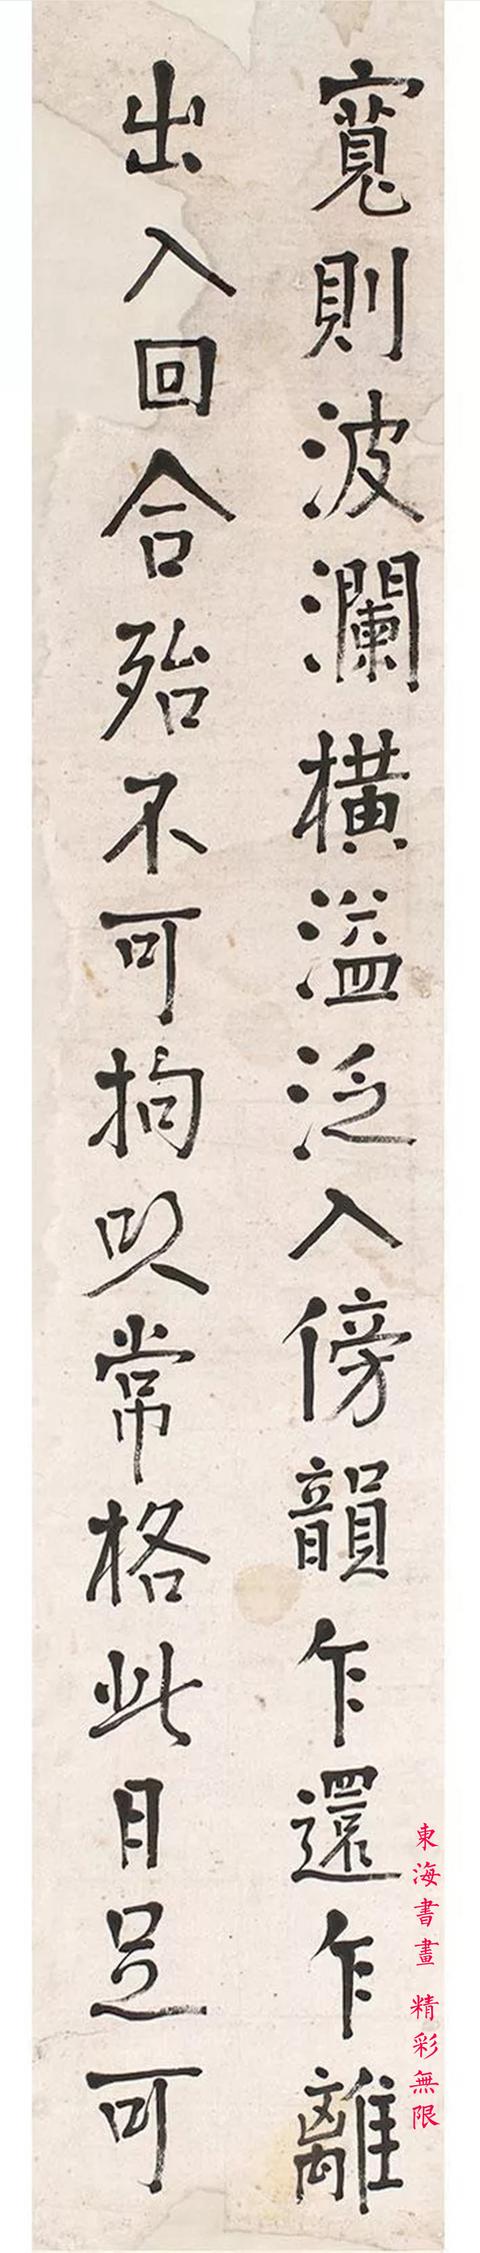 寬則波瀾橫溢泛入傍韻乍還乍離
出入回合殆不可拘以常格此日足可
東海書畫 精彩無限